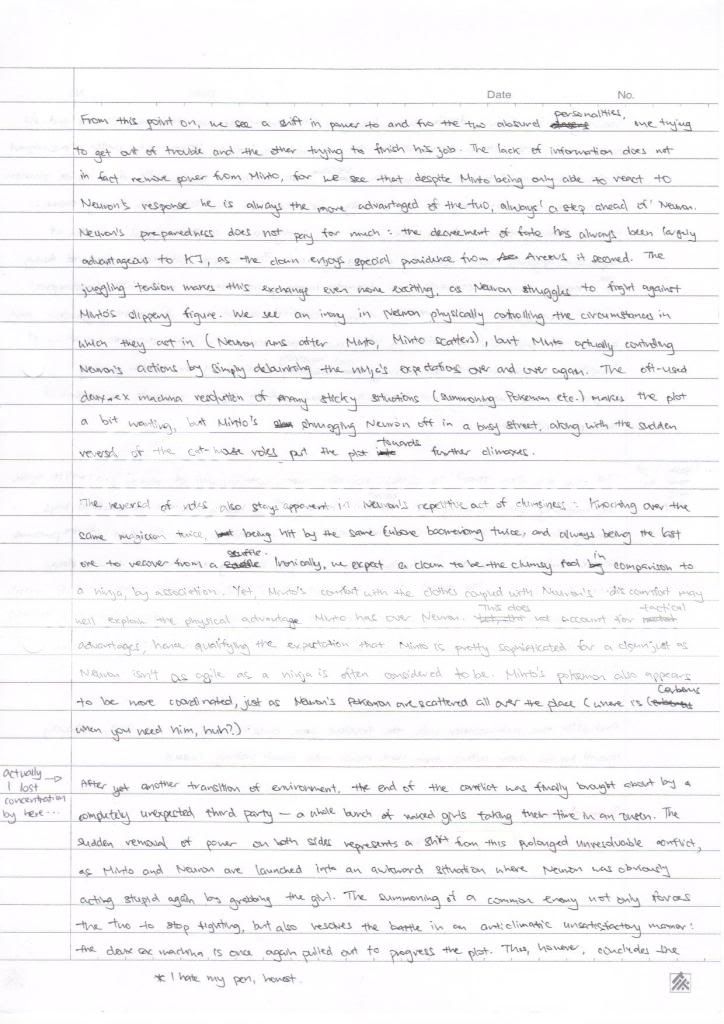 Date No.
personalities,
From this point on, we see a shift in power to and fro the two absurd one trying
to get out of trouble and the other trying to finish his job. The lack of information does not
in fact remove power from Minto, for we see that despite Minto being only able to react to
Neuron's response he is always the more advantaged of the two, always 'a step ahead of' Neuron.
Neuron's preparedness does not pay for much: the decreement of fate has always been largely
advantageous to KJ, as the clown enjoys special providence from it seemed. The
juggling tension makes this exchange even more exciting, as Neuron struggles to fight against
Minto's slippery figure. We see an irony in Neuron physically controlling the circumstances in
which they act in (Neuron runs after Minto, Minto scatters), but Minto actually controlling
Neuron's actions by simply debunking the ninja's expectations over and over again. The oft-used
deux-ex machina resolution of many sticky situations (summoning Pokemon etc.) makes the plot
a bit wanting, but Minto's shrugging Neuron off in a busy street, along with the sudden
towards
reversal of the cat-mouse roles put the plot further climaxes.
The reversal of roles also stays apparent in Neuron's repetitive act of clumsiness: Knocking over the
same magician twice, being hit by the same boomerang twice, and always being the last
scuffle.
one to recover from a Ironically, we expect a clown to be the clumsy fool in comparison to
a ninja, by association. Yet, Minto's comfort with the clothes coupled with Neuron's discomfort may
well explain the physical advantage Minto has over Neuron. This does not account for tactical
advantages, hence qualifying the expectation that Minto is pretty sophisticated for a clown just as
Neuron isn't as agile as a ninja is often considered to be. Minto's pokemon also appears
to be more coordinated, just as Neuron's Pokemon are scattered all over the place (where is Cerberus
when you need him, huh?).
actually →
I lost
concentration
by here...
After yet another transition of environment, the end of the conflict was finally brought about by a
completely unexpected third party — a whole bunch of naked girls taking their time in an onsen. The
sudden removal of power on both sides represents a shift from this prolonged unresolvable conflict,
as Minto and Neuron are launched into an awkward situation where Neuron was obviously
acting stupid again by grabbing the girl. The summoning of a common enemy not only forces
the two to stop fighting, but also resolves the battle in an anticlimatic unsatisfactory manner:
the deux ex machina is once again pulled out to progress the plot. This, however, concludes the
* I hate my pen, honest.